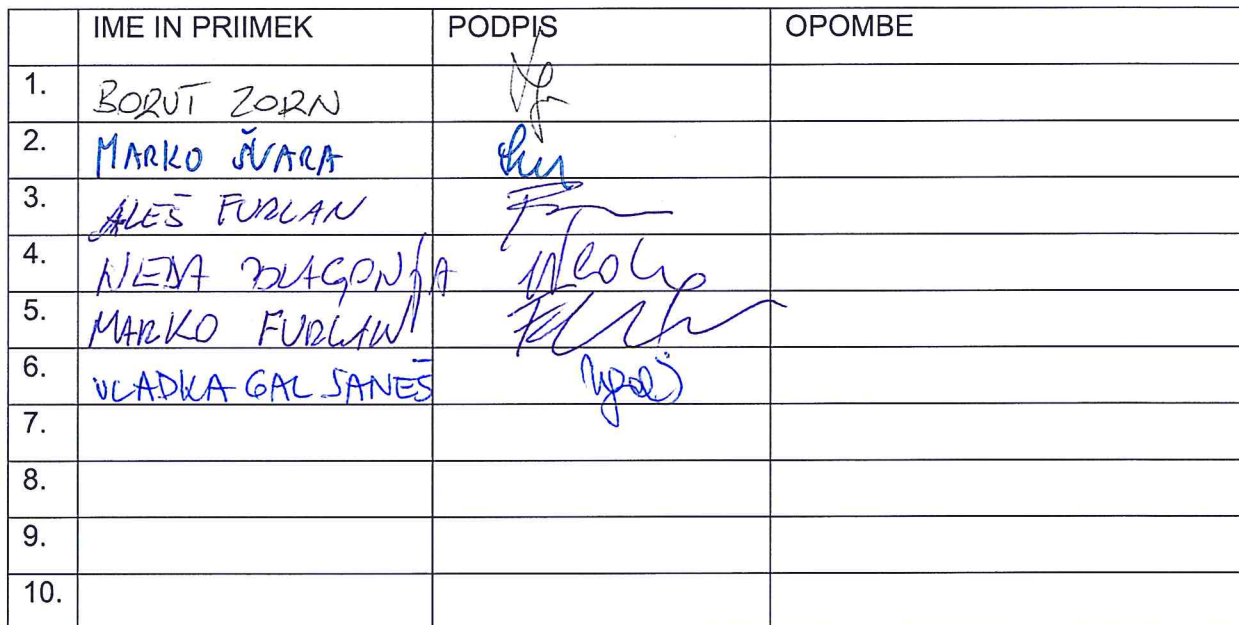 IME IN PRIIMEK PODPIS OPOMBE
1. BORUT ZORN
2. MARKO ŠVARA
3. ALEŠ FURLAN
4. NEDA BLAGONJA
5. MARKO FURLAN
6. VLADKA GAL JANEŠ
7.
8.
9.
10.